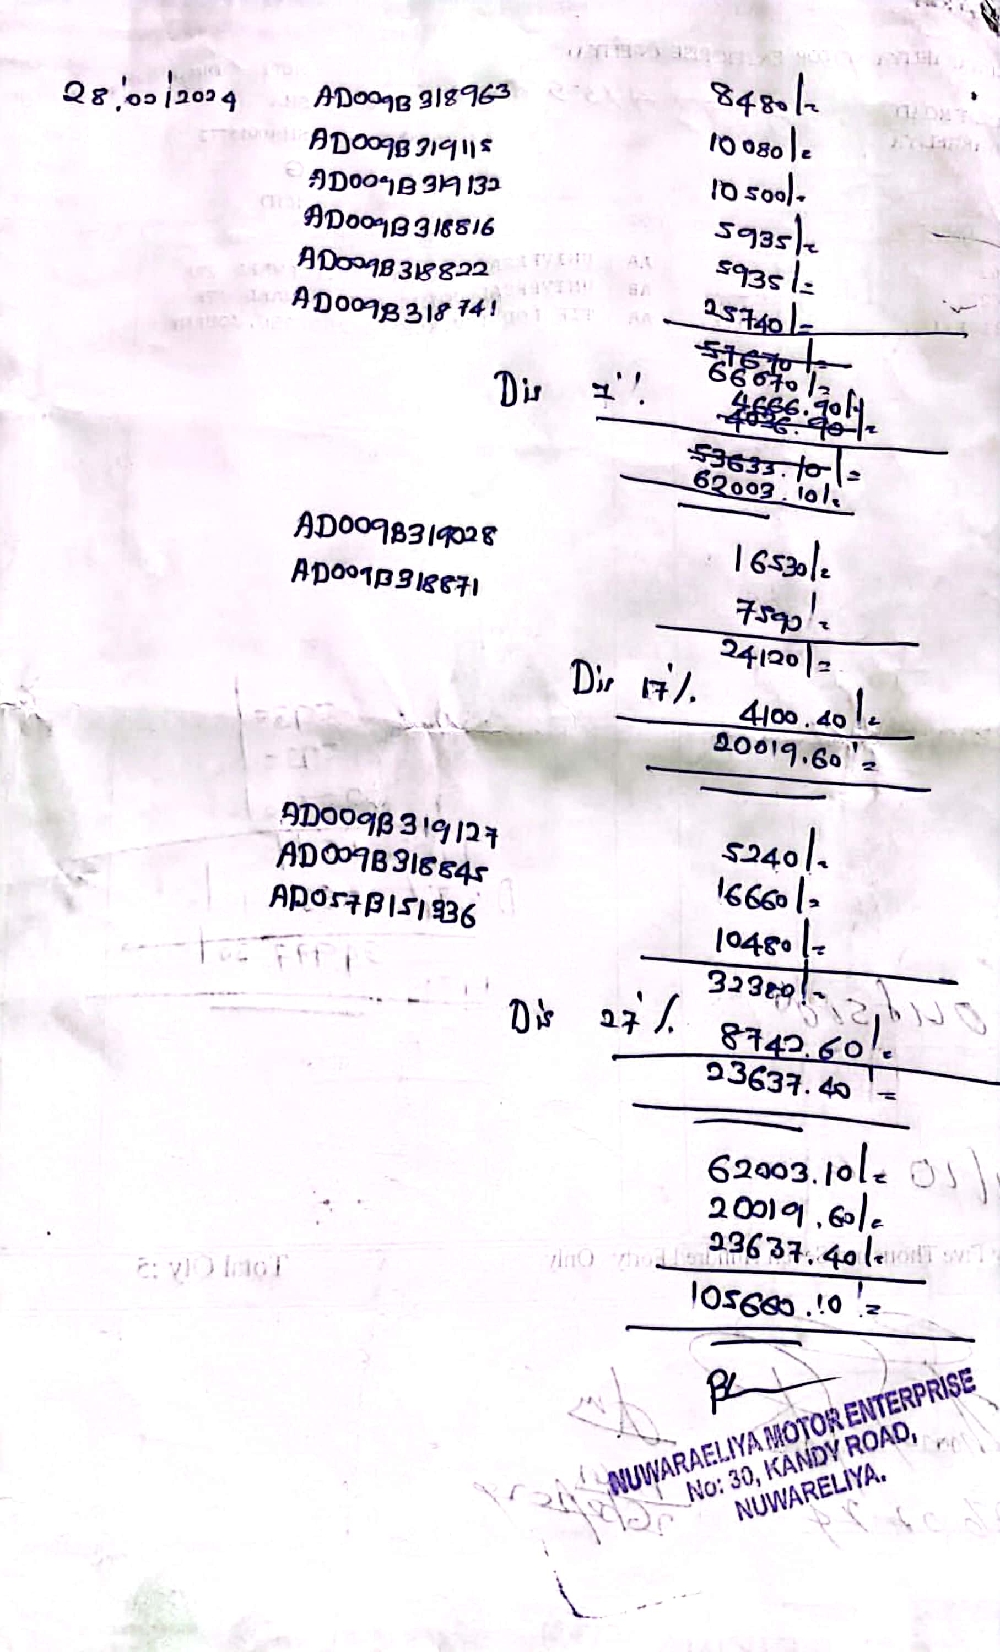 28.02|2024 AD009B318963 8480/=
AD009B319115 10080/=
AD009B319132 10500/=
AD009B318816 5935/=
AD009B318822 5935/=
AD009B318741 25740/=
57670/=
66670/=
Dis 7% 4666.90/=
4036.90/=
53633.10/=
62003.10/=
AD009B319028 16530/=
AD009B318871 7590/=
24120/=
Dis 17% 4100.40/=
20019.60/=
AD009B319127 5240/=
AD009B318845 16660/=
AD057B151936 10480/=
32380/=
Dis 27% 8742.60/=
23637.40/=
62003.10/=
20019.60/=
23637.40/=
105660.10/=
NUWARAELIYA MOTOR ENTERPRISE
No: 30, KANDY ROAD,
NUWARELIYA.